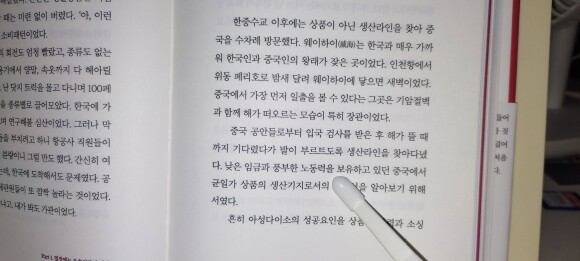 때는 미련 없이 버렸다. '아, 이런
소비패턴이었다.
회전도 엄청 빨랐고, 종류도 없는
용기에서 양말, 속옷까지 다 헤아릴
난 닷지 트럭을 몰고 다니며 100페
를 종류별로 끌어모았다. 한국에 가
며 연구해볼 심산이었다. 그러나 막
을 부치려고 하니 항공사 직원들이
분량이니 그럴 만도 했다. 간신히 여
데, 한국에 도착해서도 문제였다. 공
세관원들이 또 깜짝 놀라는 것이었다.
나고, 내가 봐도 가관이었다.
한중수교 이후에는 상품이 아닌 생산라인을 찾아 중
국을 수차례 방문했다. 웨이하이(威海)는 한국과 매우 가까
워 한국인과 중국인의 왕래가 잦은 곳이었다. 인천항에서
위동 페리호로 밤새 달려 웨이하이에 닿으면 새벽이었다.
중국에서 가장 먼저 일출을 볼 수 있다는 그곳은 기암절벽
과 함께 해가 떠오르는 모습이 특히 장관이었다.
중국 공안들로부터 입국 검사를 받은 후 해가 뜰 때
까지 기다렸다가 발이 부르트도록 생산라인을 찾아다녔
다. 낮은 임금과 풍부한 노동력을 보유하고 있던 중국에서
균일가 상품의 생산기지로서의 을 알아보기 위해
서였다.
흔히 아성다이소의 성공요인을 상품 과 소싱
들어
것
끌어
처음
다.